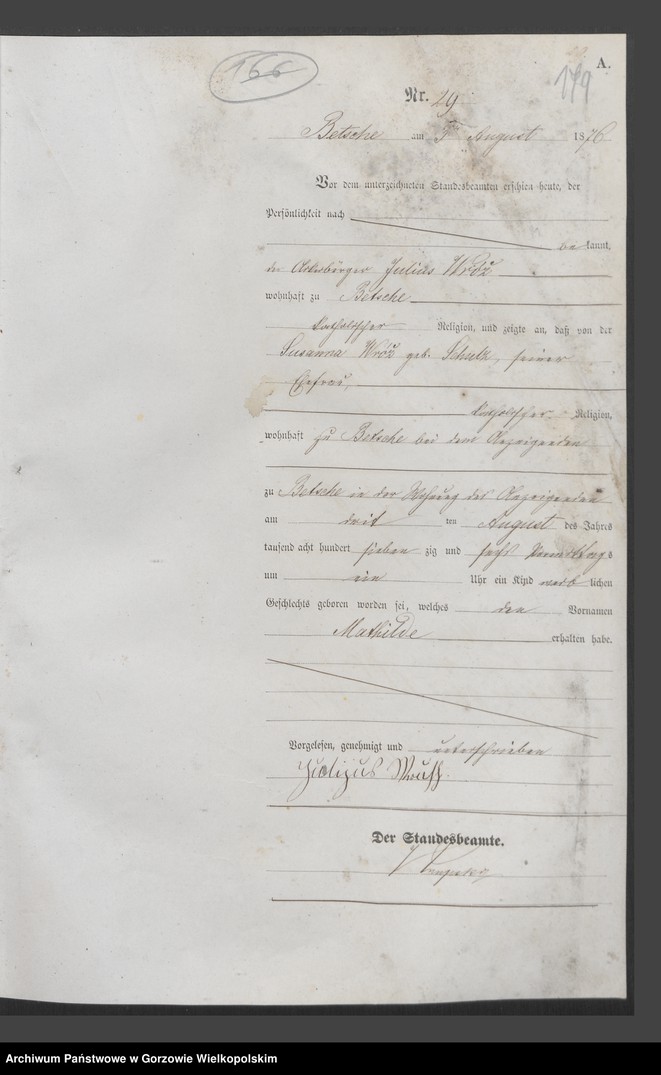 166
A.
179
Nr. 29
Betsche am 5 August 1876
Vor dem unterzeichneten Standesbeamten erschien heute, der
Persönlichkeit nach
be kannt,
der Ackerbürger Julius Wróz
wohnhaft zu Betsche
katholischer Religion, und zeigte an, daß von der
Susanna Wróz geb. Schulz, seiner
Ehefrau,
katholischer Religion,
wohnhaft zu Betsche bei dem Anzeigenden
zu Betsche in der Wohnung des Anzeigenden
am ten August des Jahres
tausend acht hundert sieben zig und sechs Vormittags
um ein Uhr ein Kind weib lichen
Geschlechts geboren worden sei, welches den Vornamen
Mathilde erhalten habe.
Vorgelesen, genehmigt und unterschrieben
Der Standesbeamte.
Archiwum Państwowe w Gorzowie Wielkopolskim